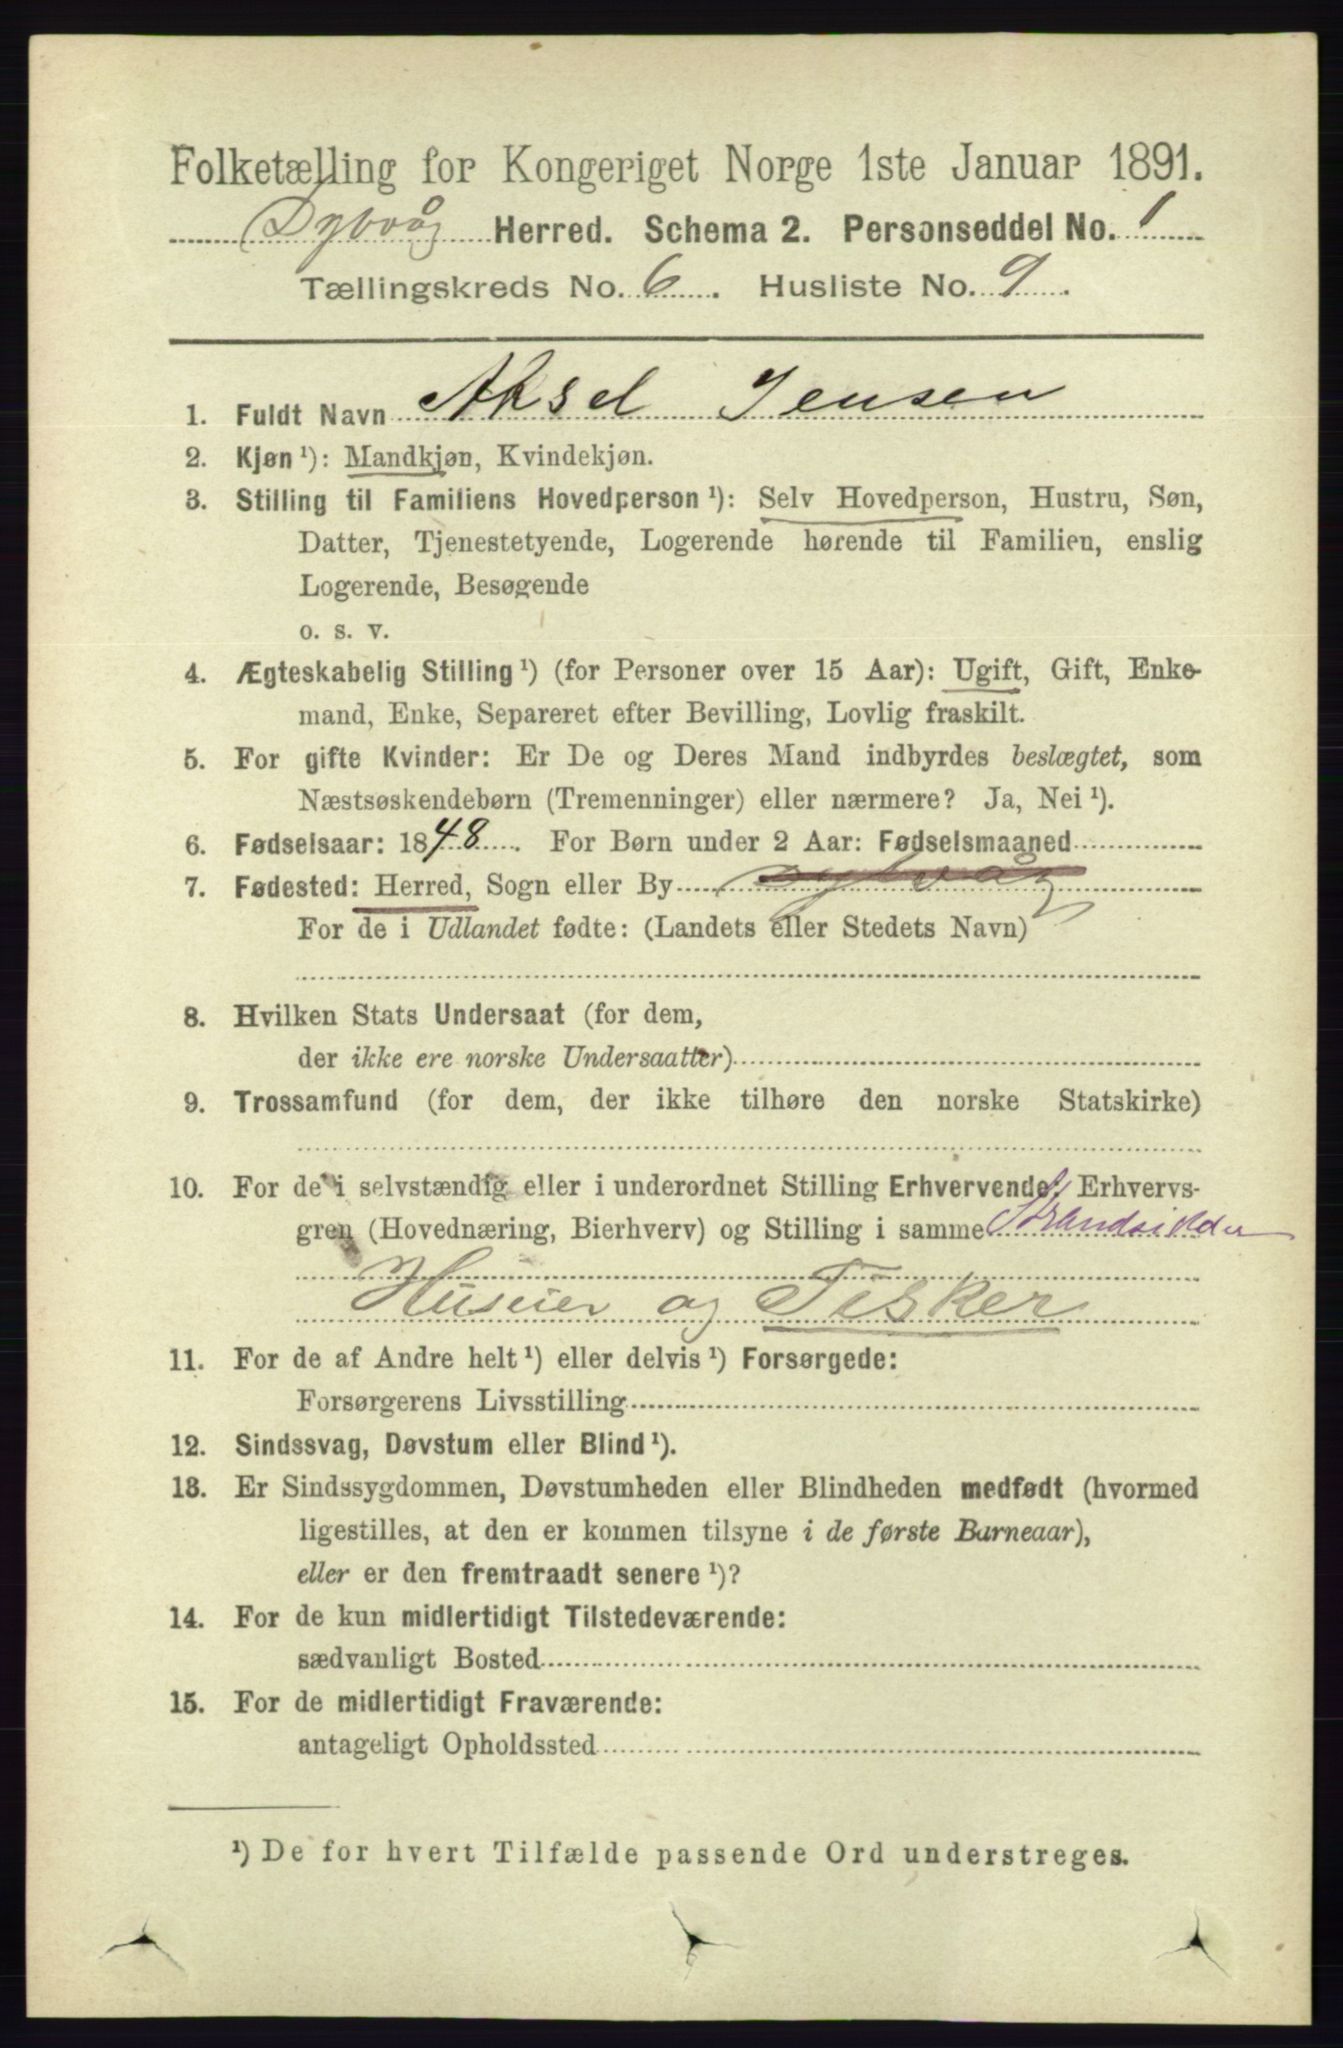 Folketælling for Kongeriget Norge 1ste Januar 1891.
Dybvåg Herred. Schema 2. Personseddel No. 1
Tællingskreds No. 6. Husliste No. 9.
1. Fuldt Navn Aksel Jensen
2. Kjøn ¹): Mandkjøn, Kvindekjøn.
3. Stilling til Familiens Hovedperson ¹): Selv Hovedperson, Hustru, Søn,
Datter, Tjenestetyende, Logerende hørende til Familien, enslig
Logerende, Besøgende
o. s. v.
4. Ægteskabelig Stilling ¹) (for Personer over 15 Aar): Ugift, Gift, Enke-
mand, Enke, Separeret efter Bevilling, Lovlig fraskilt.
5. For gifte Kvinder: Er De og Deres Mand indbyrdes beslægtet, som
Næstsøskendebørn (Tremenninger) eller nærmere? Ja, Nei ¹).
6. Fødselsaar: 1848. For Børn under 2 Aar: Fødselsmaaned
7. Fødested: Herred, Sogn eller By Dybvåg
For de i Udlandet fødte: (Landets eller Stedets Navn)
8. Hvilken Stats Undersaat (for dem,
der ikke ere norske Undersaatter)
9. Trossamfund (for dem, der ikke tilhøre den norske Statskirke)
10. For de i selvstændig eller i underordnet Stilling Erhvervende: Erhvervs-
gren (Hovednæring, Bierhverv) og Stilling i samme Strandsidder
Huseier og Fisker
11. For de af Andre helt ¹) eller delvis ¹) Forsørgede:
Forsørgerens Livsstilling
12. Sindssvag, Døvstum eller Blind ¹).
13. Er Sindssygdommen, Døvstumheden eller Blindheden medfødt (hvormed
ligestilles, at den er kommen tilsyne i de første Barneaar),
eller er den fremtraadt senere ¹)?
14. For de kun midlertidigt Tilstedeværende:
sædvanligt Bosted
15. For de midlertidigt Fraværende:
antageligt Opholdssted
¹) De for hvert Tilfælde passende Ord understreges.